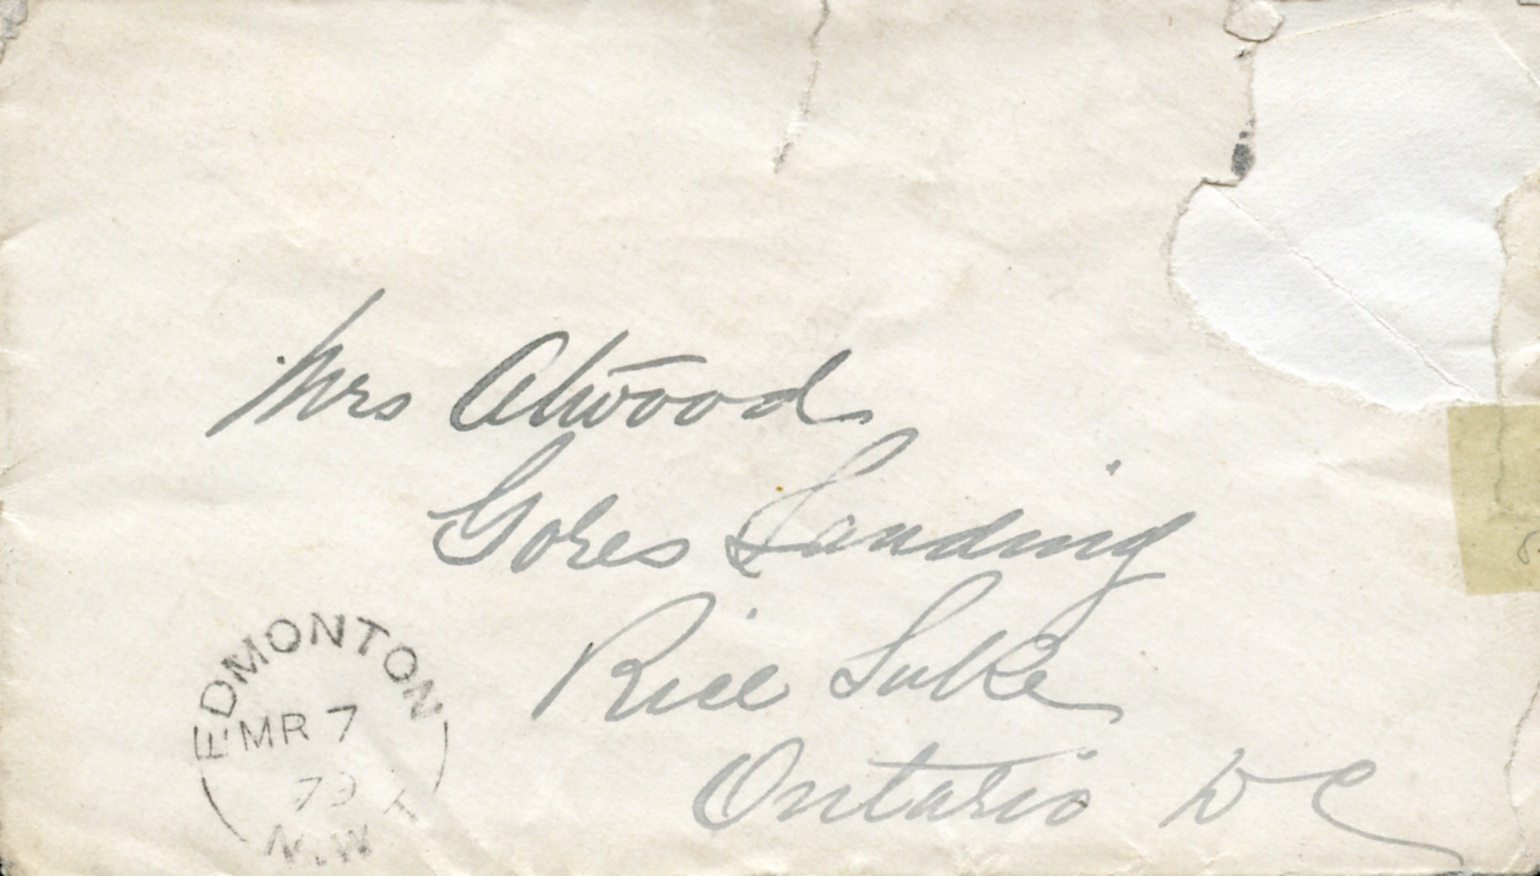 Mrs Atwood
Gores Landing
Rice Lake
Ontario DC
EDMONTON
MR 7
79
N.W.T